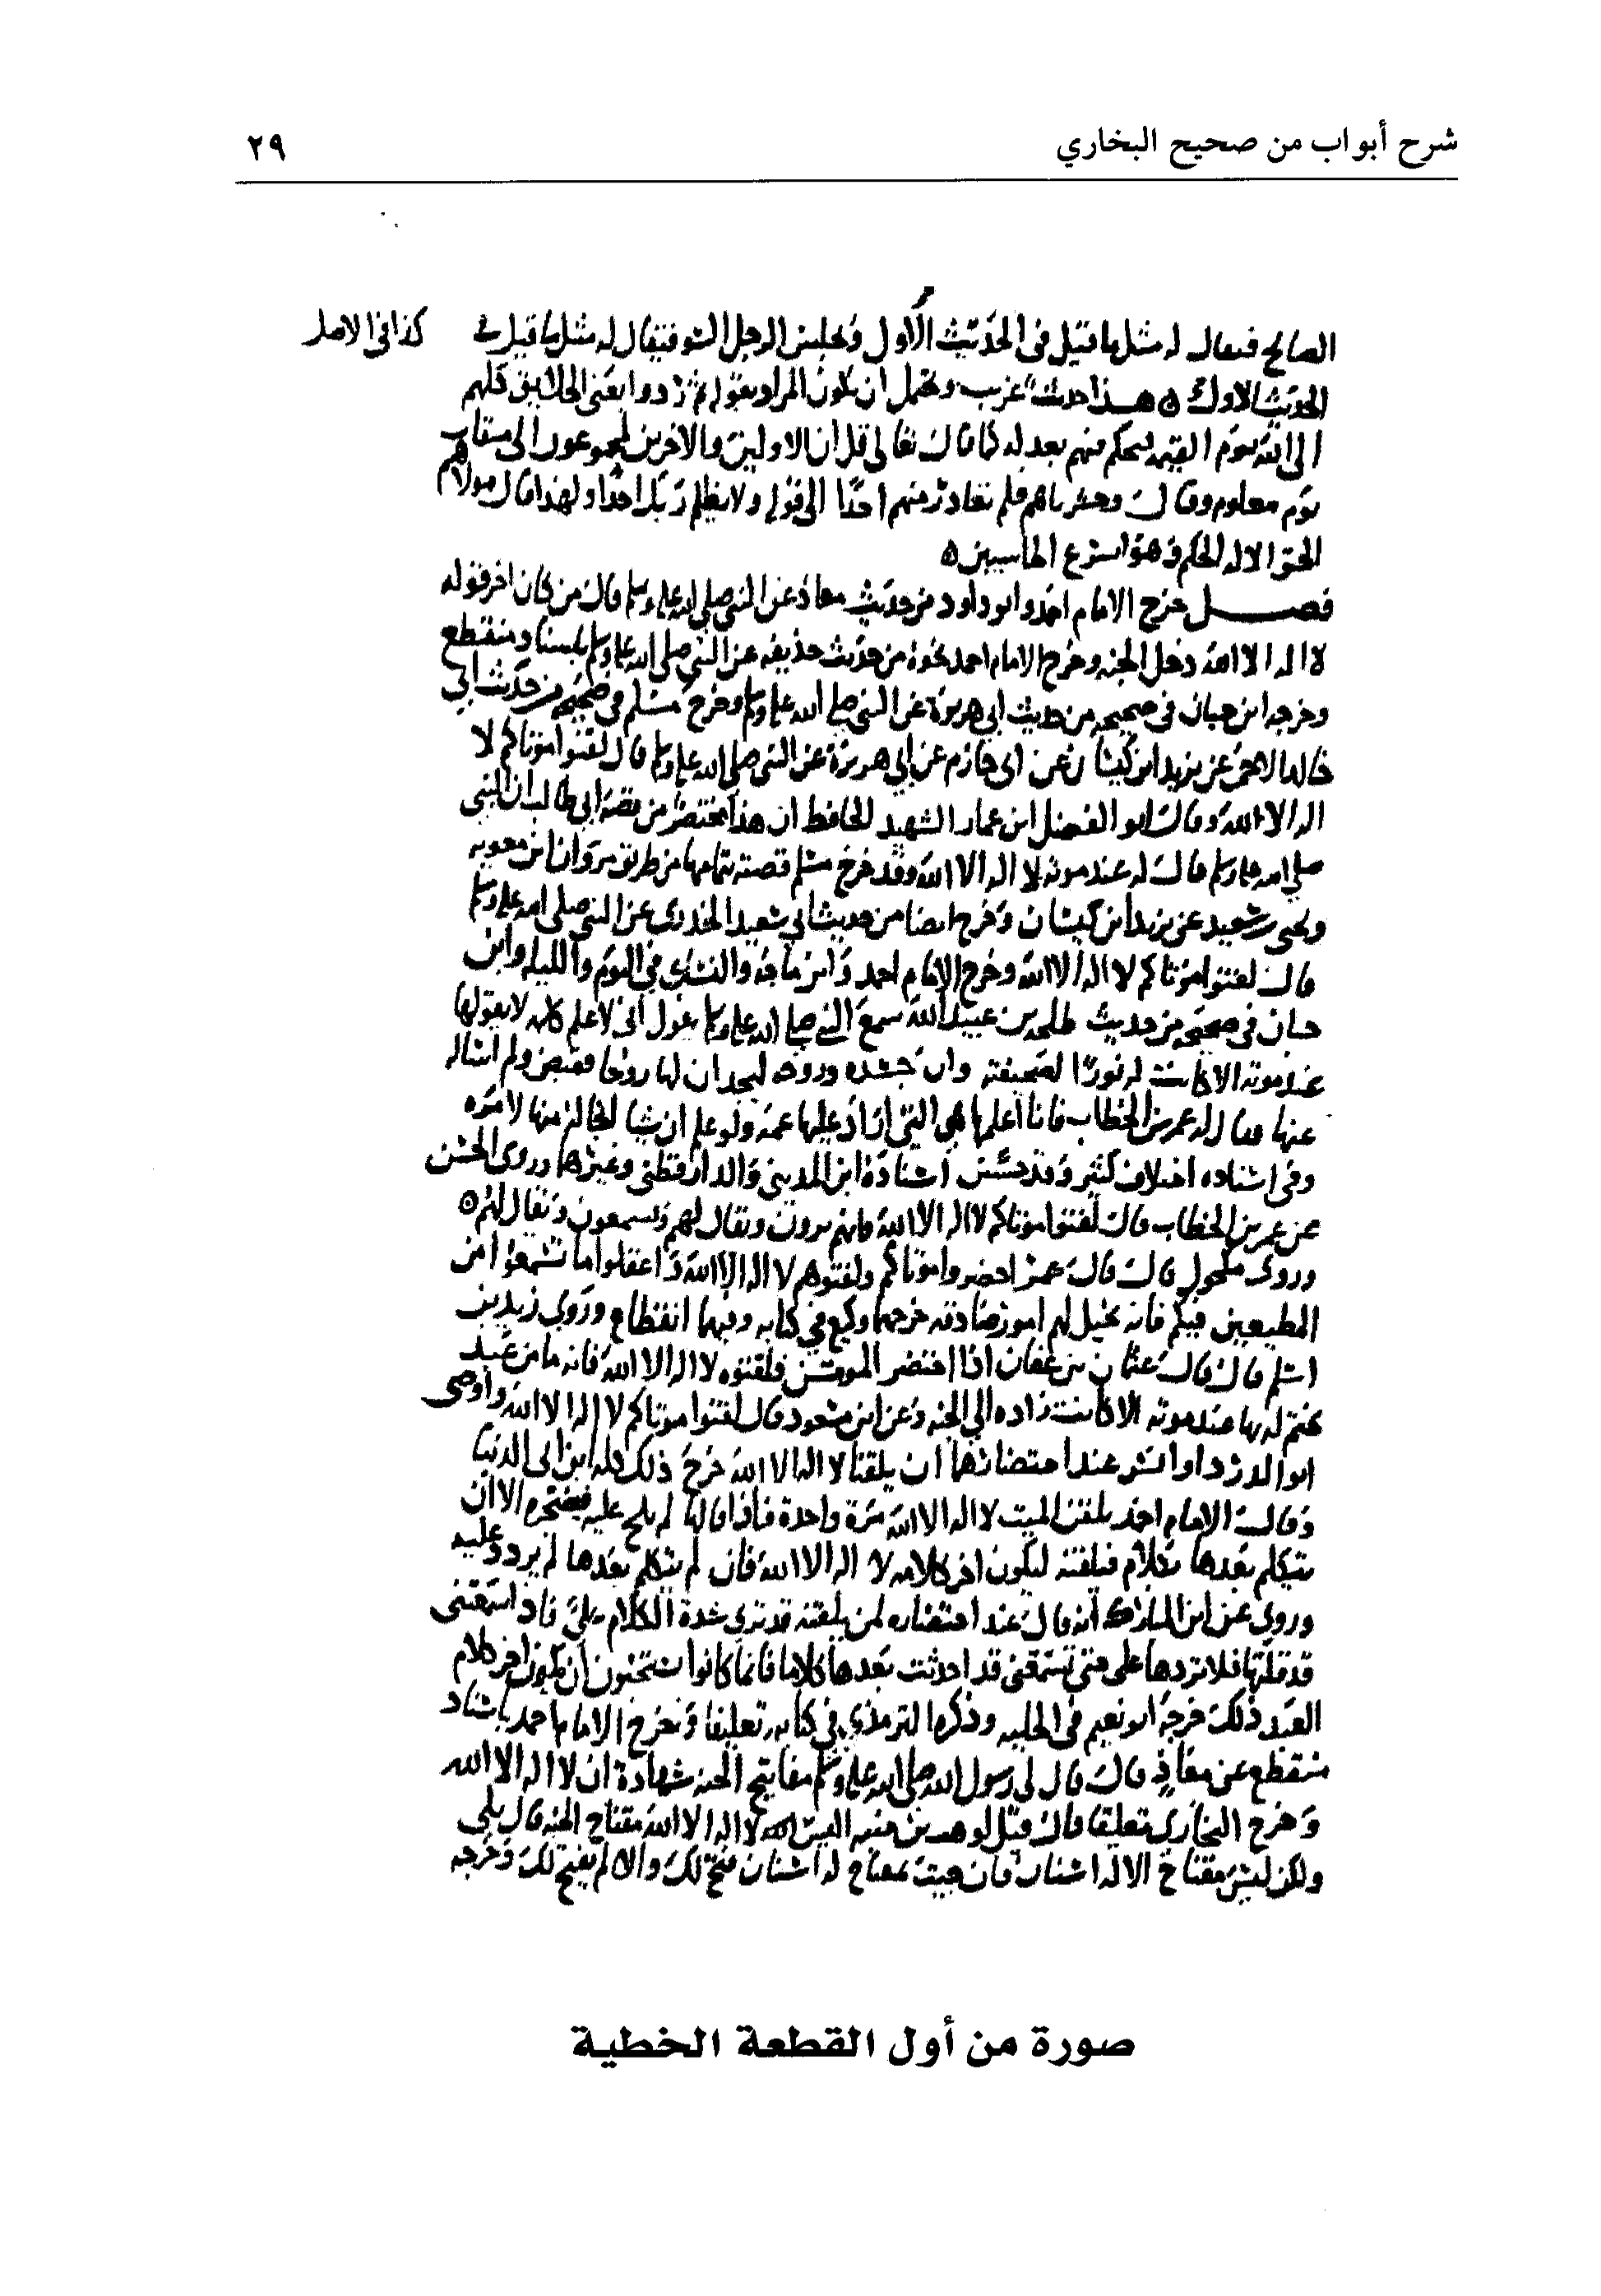 شرح أبواب من صحيح البخاري
٢٩
الصالح فيقال له مثل ما قيل في الحديث الأول ويجلس الرجل السو فيقال له مثل ما قيل في
كذا في الاصل
الحديث الاول ه هذا حديث غريب ويحتمل ان يكون المراد بقوله ثم ردوا يعني الخلايق كلهم
الى الله يوم القيمة ليحكم بينهم بعدله كما قال تعالى قل ان الاولين والاخرين لمجموعون الى ميقات
يوم معلوم وقال وحشرناهم فلم نغادر منهم احدا الى قوله ولا يظلم ربك احدا ولهذا قال مولاهم
الحق الا له الحكم وهو اسرع الحاسبين ه
فصل خرج الامام احمد وابو داود من حديث معاذ عن النبي صلى الله عليه وسلم قال من كان اخر قوله
لا اله الا الله دخل الجنه وخرج الامام احمد نحوه من حديث حذيفه عن النبي صلى الله عليه وسلم باسناد منقطع
وخرجه ابن حبان في صحيحه من حديث ابي هريرة عن النبي صلى الله عليه وسلم وخرج مسلم في صحيحه من حديث ابي
خالد الاحمر عن يزيد ابن كيسان عن ابي حازم عن ابي هريرة عن النبي صلى الله عليه وسلم قال لقنوا موتاكم لا
اله الا الله وقال ابو الفضل ابن عمار الشهيد الحافظ ان هذا مختصر من قصة ابي طالب ان النبي
صلى الله عليه وسلم قال له عند موته لا اله الا الله وقد خرج مسلم قصته بتمامها من طريق مروان ابن معويه
ويحيى بن سعيد عن يزيد ابن كيسان وخرج ايضا من حديث ابي سعيد الخدري عن النبي صلى الله عليه وسلم
قال لقنوا موتاكم لا اله الا الله وخرج الامام احمد وابن ماجه والنسائي في اليوم والليله وابن
حبان في صحيحه من حديث طلحه بن عبيد الله سمع النبي صلى الله عليه وسلم يقول اني لاعلم كلمه لا يقولها
عند موته الا كانت له نورا لصحيفته وان جسده وروحه ليجدان لها روحا فقبض ولم اساله
عنها فقال له عمر بن الخطاب فانا اعلمها هي التي اراد عليها عمه ولو علم ان شيا انجا له منها لامره
وفي اسناده اختلاف كثير وقد حسن اسناده ابن المديني والدارقطني وغيرهما وروى الحسن
عن عمر بن الخطاب قال لقنوا موتاكم لا اله الا الله فانهم يرون ويقال لهم ويسمعون ويقال لهم ه
وروى مكحول قال قال عمر احضروا موتاكم ولقنوهم لا اله الا الله واعقلوا ما تسمعوا من
المطيعين فيكم فانه يخيل لهم امور صادقه خرجهما وكيع في كتابه وفيهما انقطاع وروى زيد بن
اسلم قال قال عثمان بن عفان اذا احتضر الميت فلقنوه لا اله الا الله فانه ما من عبد
يختم له بها عند موته الا كانت زاده الى الجنه وعن ابن مسعود قال لقنوا موتاكم لا اله الا الله واوصى
ابو الدرداء وانس عند احتضارهما ان يلقنا لا اله الا الله خرج ذلك كله ابن ابي الدنيا
وقال الامام احمد يلقن الميت لا اله الا الله مرة واحدة فاذا قالها لم يلح عليه فيضجره الا ان
يتكلم بعدها بكلام فيلقنه ليكون اخر كلامه لا اله الا الله فان لم يتكلم بعدها لم يردد عليه
وروى عن ابن المبارك انه قال عند احتضاره لمن يلقنه قد ترى شدة الكلام علي فاذا سمعتني
قد قلتها فلا تردها علي حتى تسمعني قد احدثت بعدها كلاما فانما كانوا يستحبون ان يكون اخر كلام
العبد ذلك خرجه ابو نعيم في الحليه وذكره الترمذي في كتابه تعليقا وخرج الامام احمد باسناد
منقطع عن معاذ قال قال لي رسول الله صلى الله عليه وسلم مفاتيح الجنه شهادة ان لا اله الا الله
وخرج البخاري تعليقا قال قيل لوهب بن منبه اليس لا اله الا الله مفتاح الجنه قال بلى
ولكن ليس مفتاح الا له اسنان فان جيت بمفتاح له اسنان فتح لك والا لم يفتح لك وخرجه
صورة من أول القطعة الخطية